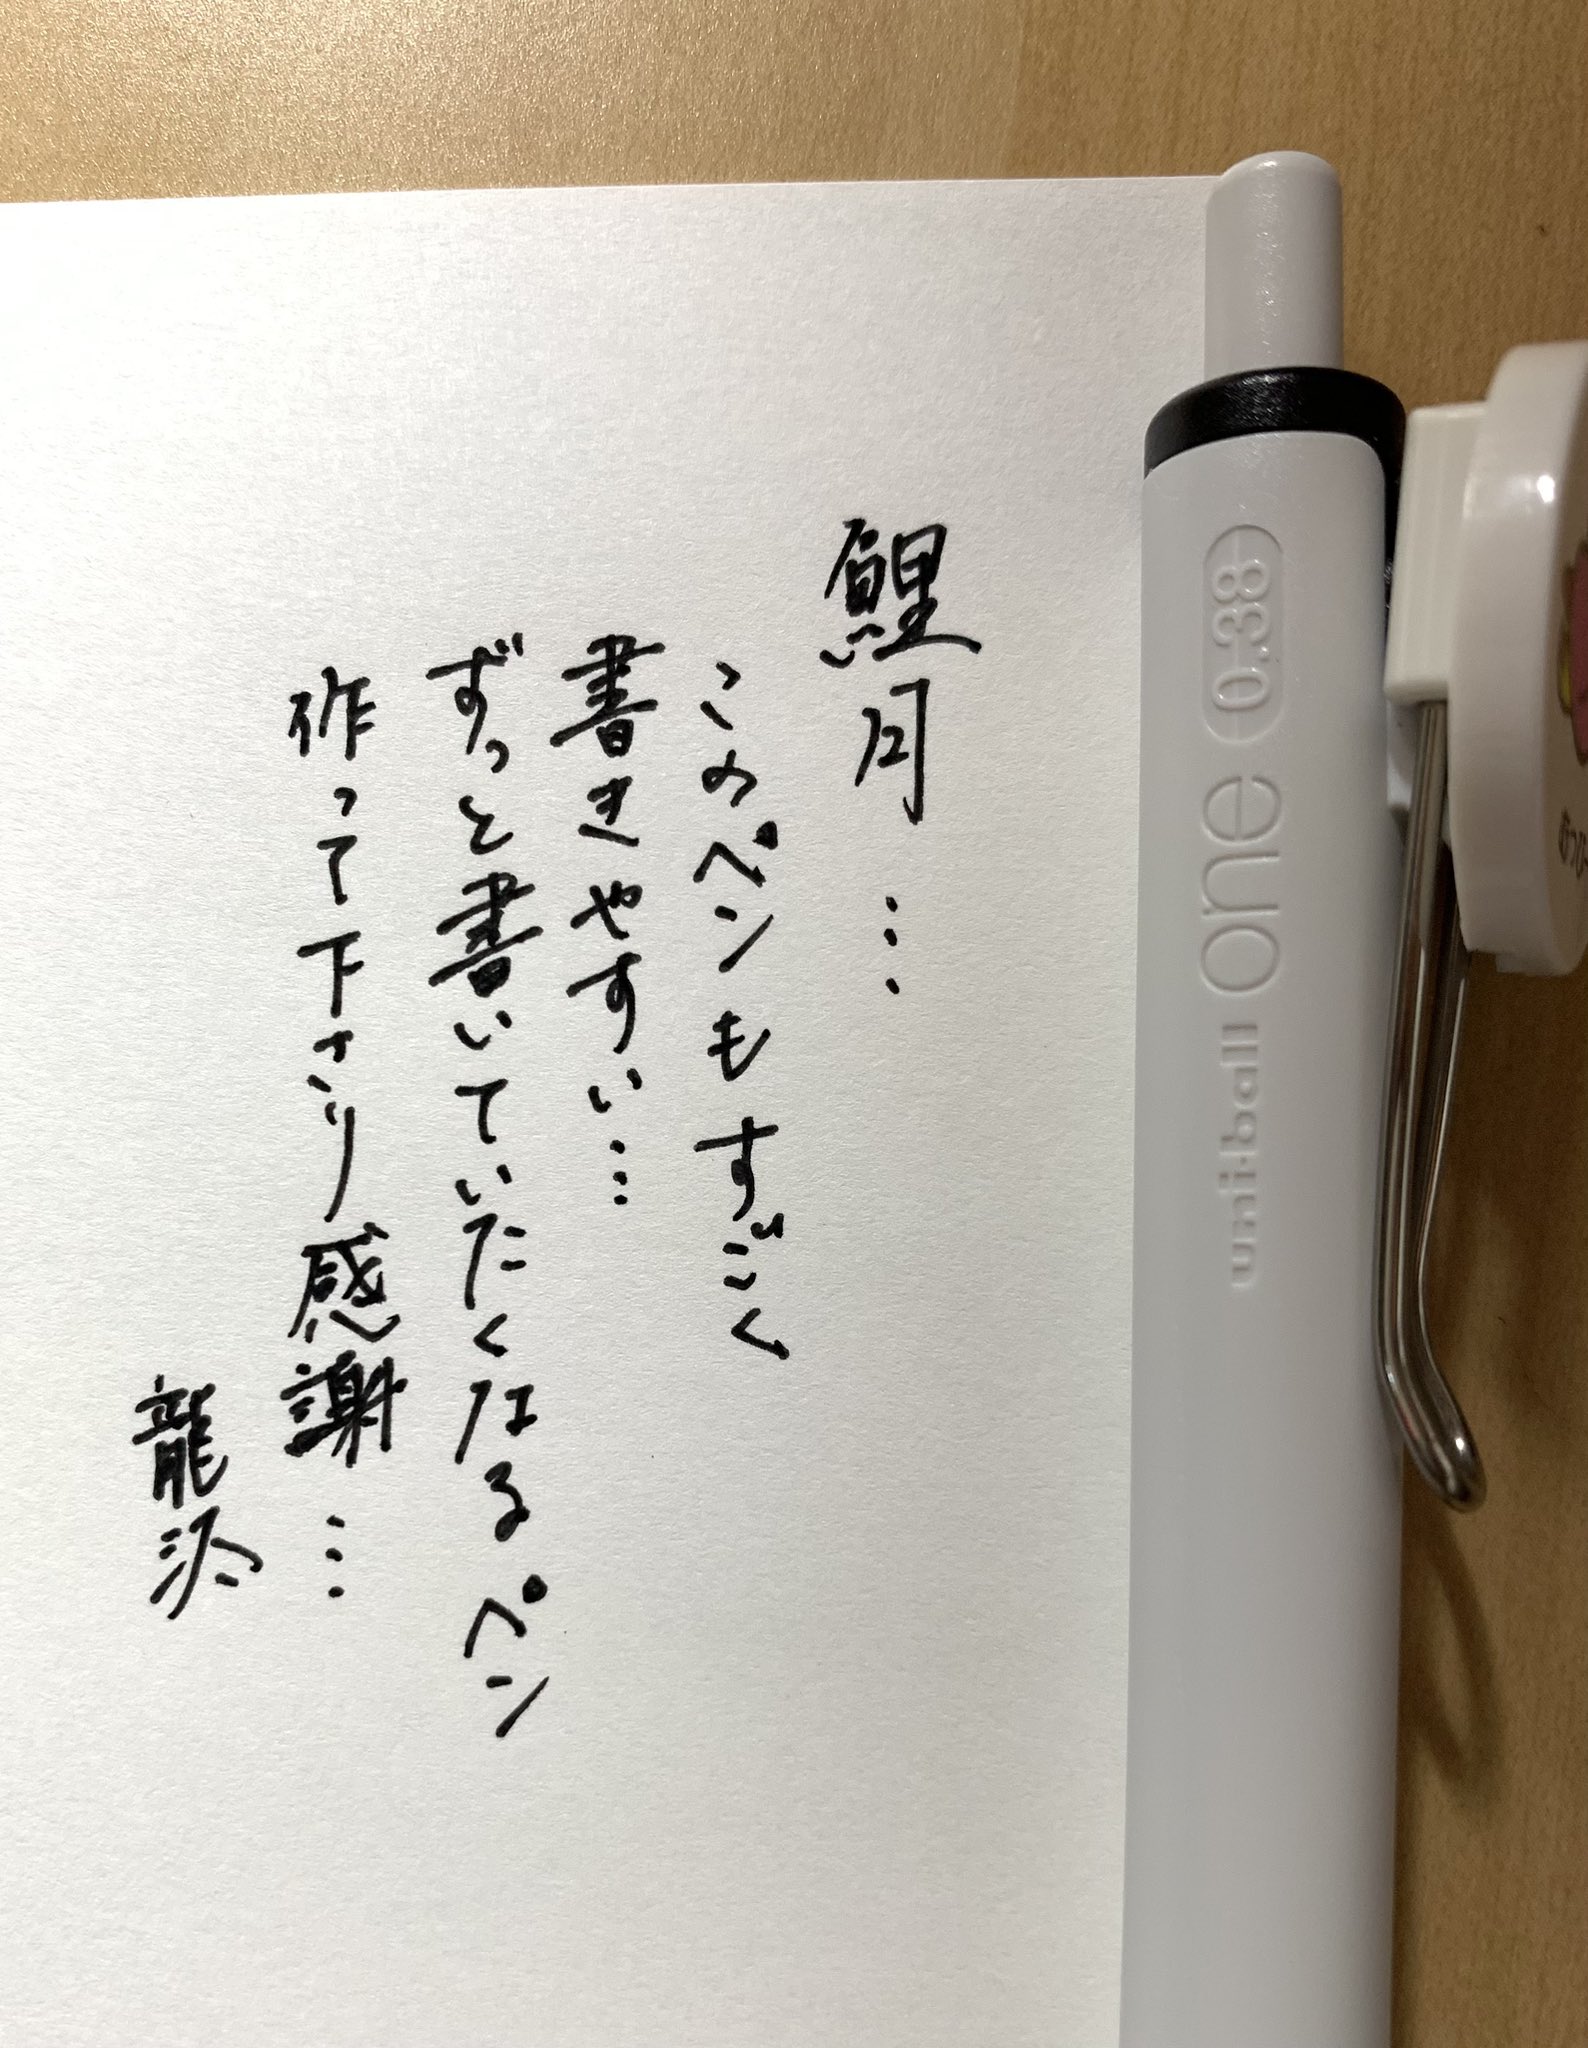 鯉月…
このペンもすごく
書きやすい…
ずっと書いていたくなるペン
作って下さり感謝…
龍
uni-ball one 0.38